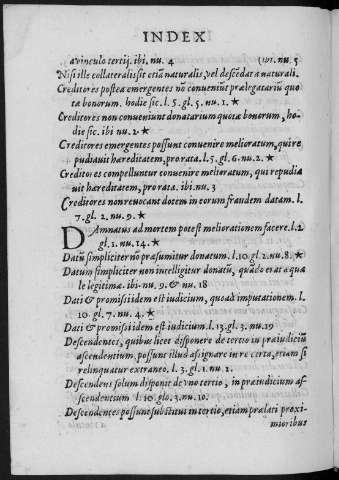 INDEX
a vinculo tertij. ibi. nu. 4 (ibi. nu. 5
Nisi ille collateralis sit etiã naturalis, vel descẽdat a naturali.
Creditores postea emergentes nõ conveniũt prælegatariũ quo
ta bonorum. hodie sic. l. 5. gl. 5. nu. 1. ★
Creditores non conveniunt donatarium quotæ bonorum, ho-
die sic. ibi nu. 2. ★
Creditores emergentes possunt convenire melioratum, qui re
pudiauit hæreditatem, pro rata. l. 5. gl. 6. nu. 2. ★
Creditores compelluntur convenire melioratum, qui repudia
uit hæreditatem, pro rata. ibi. nu. 3
Creditores non reuocant dotem in eorum fraudem datam. l.
7. gl. 2. nu. 9. ★
DAmnatus ad mortem potest meliorationem facere. l. 2
gl. 1. nu. 14. ★
Datũ simpliciter nõ præsumitur donatum. l. 10. gl. 2. nu. 8. ★
Datum simpliciter non intelligitur donatũ, quãdo erat aquæ
le legitimæ. ibi. nu. 9. & nu. 18
Dati & promissi idem est iudicium, quoad imputationem. l.
10. gl. 7. nu. 4. ★
Dati & promissi idem est iudicium. l. 13. gl. 3. nu. 29
Descendentes, quibus licet disponere de tertio in præiudiciũ
ascendentium. possunt illud assignare in re certa, etiam si
relinquatur extraneo. l. 3. gl. 1. nu. 2.
Descendens solum disponit de vno tertio, in præiudicium as-
scendentium l. 10. glo. 3. nu. 10.
Descendentes possunt substitui in tertio, etiam prælati proxi-
mioribus